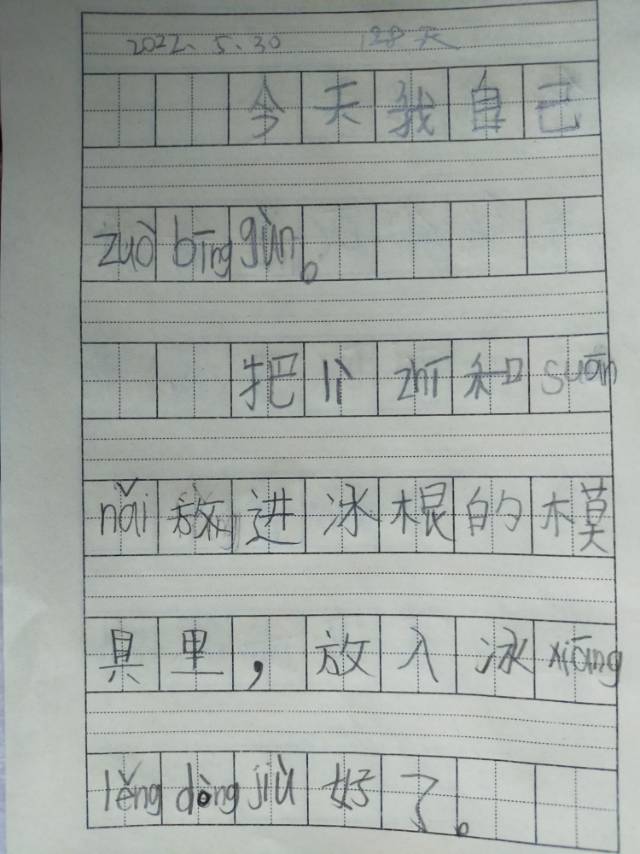 2022.5.30 128天
今天我自己
zuò bīng gùn。
把lì zhī和suān
nǎi放进冰棍的模
具里，放入冰xiāng
lěng dòng jiù好了。